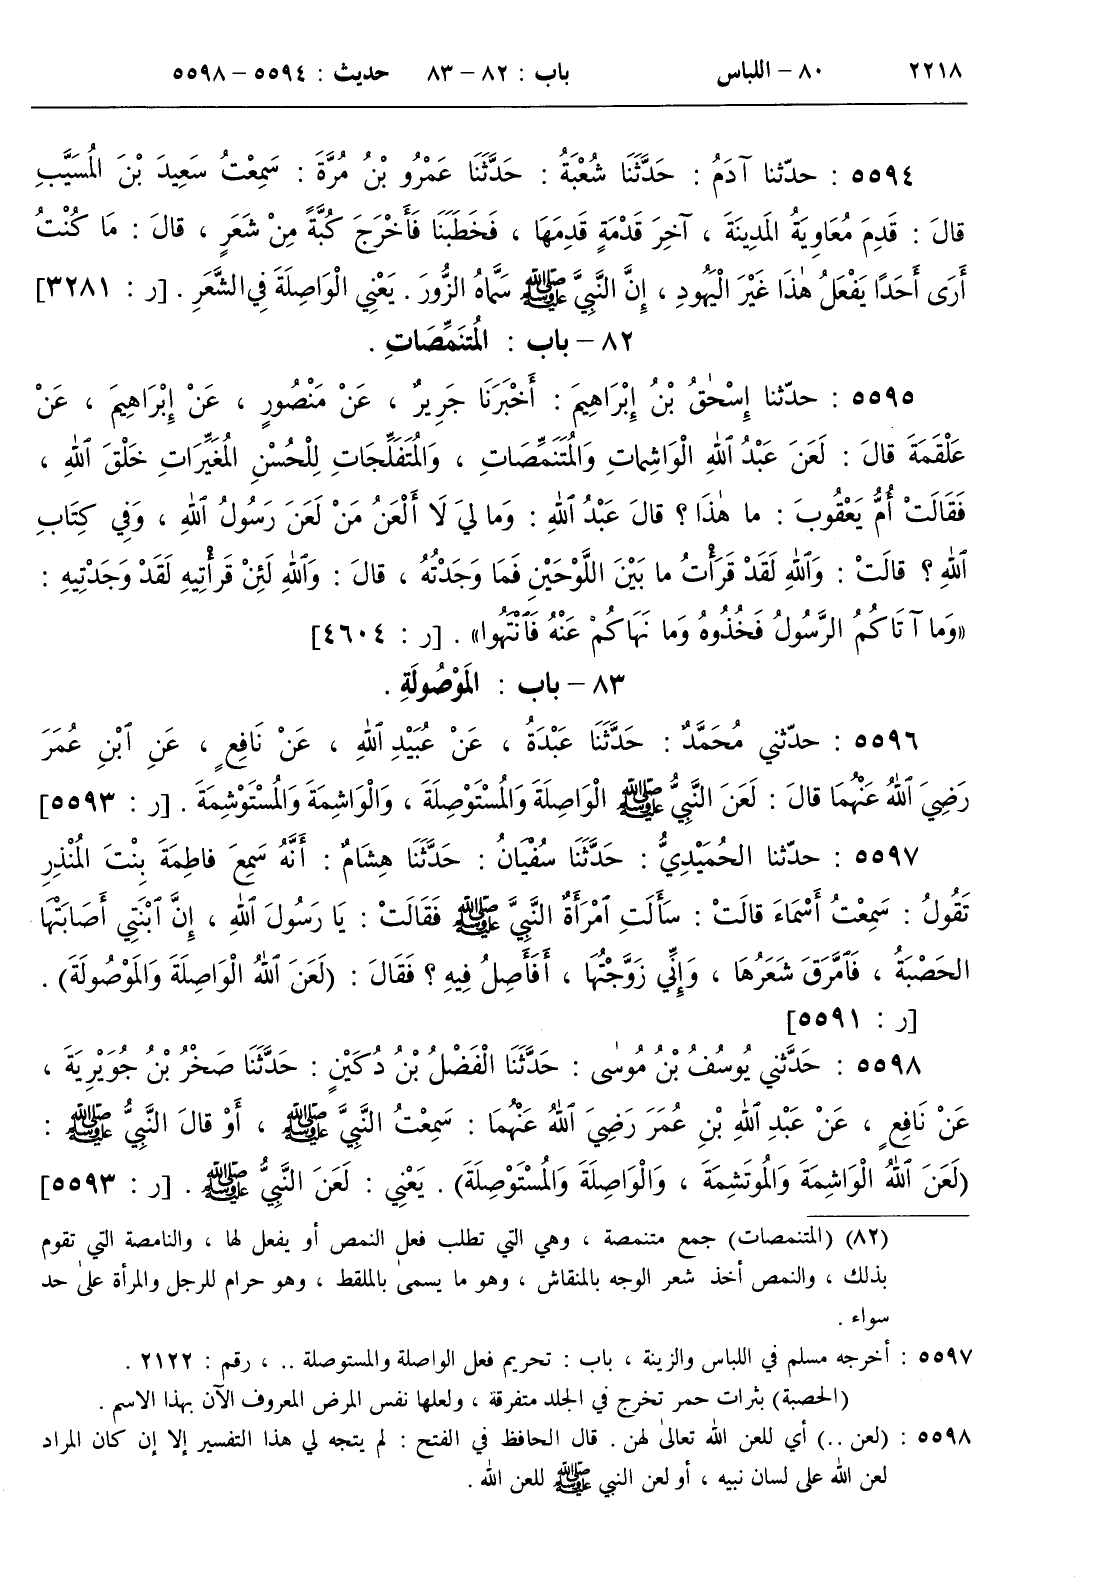 ٢٢١٨ ٨٠ – اللباس باب : ٨٢ – ٨٣ حديث : ٥٥٩٤ – ٥٥٩٨
٥٥٩٤ : حدّثنا آدَمُ : حَدَّثَنَا شُعْبَةُ : حَدَّثَنَا عَمْرُو بْنُ مُرَّةَ : سَمِعْتُ سَعِيدَ بْنَ الْمُسَيَّبِ
قالَ : قَدِمَ مُعَاوِيَةُ الْمَدِينَةَ ، آخِرَ قَدْمَةٍ قَدِمَهَا ، فَخَطَبَنَا فَأَخْرَجَ كُبَّةً مِنْ شَعَرٍ ، قالَ : ما كُنْتُ
أَرَى أَحَدًا يَفْعَلُ هٰذَا غَيْرَ الْيَهُودِ ، إِنَّ النَّبِيَّ ﷺ سَمَّاهُ الزُّورَ . يَعْنِي الْوَاصِلَةَ فِي الشَّعَرِ . [ر : ٣٢٨١]
٨٢ – باب : الْمُتَنَمِّصَاتِ .
٥٥٩٥ : حدّثنا إِسْحٰقُ بْنُ إِبْرَاهِيمَ : أَخْبَرَنَا جَرِيرٌ ، عَنْ مَنْصُورٍ ، عَنْ إِبْرَاهِيمَ ، عَنْ
عَلْقَمَةَ قالَ : لَعَنَ عَبْدُ ٱللهِ الْوَاشِمَاتِ وَالْمُتَنَمِّصَاتِ ، وَالْمُتَفَلِّجَاتِ لِلْحُسْنِ الْمُغَيِّرَاتِ خَلْقَ ٱللهِ ،
فَقَالَتْ أُمُّ يَعْقُوبَ : ما هٰذَا ؟ قالَ عَبْدُ ٱللهِ : وَما لِيَ لَا أَلْعَنُ مَنْ لَعَنَ رَسُولُ ٱللهِ ، وَفِي كِتَابِ
ٱللهِ ؟ قالَتْ : وَٱللهِ لَقَدْ قَرَأْتُ ما بَيْنَ اللَّوْحَيْنِ فَمَا وَجَدْتُهُ ، قالَ : وَٱللهِ لَئِنْ قَرَأْتِيهِ لَقَدْ وَجَدْتِيهِ :
«وَما آتَاكُمُ الرَّسُولُ فَخُذُوهُ وَما نَهَاكُمْ عَنْهُ فَٱنْتَهُوا» . [ر : ٤٦٠٤]
٨٣ – باب : الْمَوْصُولَةِ .
٥٥٩٦ : حدّثني مُحَمَّدٌ : حَدَّثَنَا عَبْدَةُ ، عَنْ عُبَيْدِ ٱللهِ ، عَنْ نَافِعٍ ، عَنِ ٱبْنِ عُمَرَ
رَضِيَ ٱللهُ عَنْهُمَا قالَ : لَعَنَ النَّبِيُّ ﷺ الْوَاصِلَةَ وَالْمُسْتَوْصِلَةَ ، وَالْوَاشِمَةَ وَالْمُسْتَوْشِمَةَ . [ر : ٥٥٩٣]
٥٥٩٧ : حدّثنا الحُمَيْدِيُّ : حَدَّثَنَا سُفْيَانُ : حَدَّثَنَا هِشَامٌ : أَنَّهُ سَمِعَ فاطِمَةَ بِنْتَ الْمُنْذِرِ
تَقُولُ : سَمِعْتُ أَسْمَاءَ قالَتْ : سَأَلَتِ ٱمْرَأَةٌ النَّبِيَّ ﷺ فَقَالَتْ : يَا رَسُولَ ٱللهِ ، إِنَّ ٱبْنَتِي أَصَابَتْهَا
الحَصْبَةُ ، فَٱمَّرَقَ شَعَرُهَا ، وَإِنِّي زَوَّجْتُهَا ، أَفَأَصِلُ فِيهِ ؟ فَقَالَ : (لَعَنَ ٱللهُ الْوَاصِلَةَ وَالمَوْصُولَةَ) .
[ر : ٥٥٩١]
٥٥٩٨ : حَدَّثَنِي يُوسُفُ بْنُ مُوسٰى : حَدَّثَنَا الْفَضْلُ بْنُ دُكَيْنٍ : حَدَّثَنَا صَخْرُ بْنُ جُوَيْرِيَةَ ،
عَنْ نَافِعٍ ، عَنْ عَبْدِ ٱللهِ بْنِ عُمَرَ رَضِيَ ٱللهُ عَنْهُمَا : سَمِعْتُ النَّبِيَّ ﷺ ، أَوْ قالَ النَّبِيُّ ﷺ :
(لَعَنَ ٱللهُ الْوَاشِمَةَ وَالْمُوتَشِمَةَ ، وَالْوَاصِلَةَ وَالْمُسْتَوْصِلَةَ) . يَعْنِي : لَعَنَ النَّبِيُّ ﷺ . [ر : ٥٥٩٣]
(٨٢) (المتنمصات) جمع متنمصة ، وهي التي تطلب فعل النمص أو يفعل لها ، والنامصة التي تقوم
بذلك ، والنمص أخذ شعر الوجه بالمنقاش ، وهو ما يسمىٰ بالملقط ، وهو حرام للرجل والمرأة علىٰ حد
سواء .
٥٥٩٧ : أخرجه مسلم في اللباس والزينة ، باب : تحريم فعل الواصلة والمستوصلة .. ، رقم : ٢١٢٢ .
(الحصبة) بثرات حمر تخرج في الجلد متفرقة ، ولعلها نفس المرض المعروف الآن بهذا الاسم .
٥٥٩٨ : (لعن ..) أي للعن الله تعالىٰ لهن . قال الحافظ في الفتح : لم يتجه لي هذا التفسير إلا إن كان المراد
لعن الله على لسان نبيه ، أو لعن النبي ﷺ للعن الله .